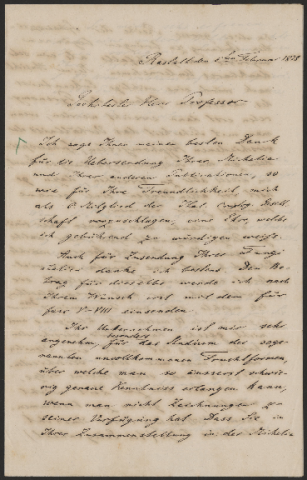 5ten Februar 1878
Geehrtester Herr Professor
Ich sage Ihnen meinen besten Dank
für die Uebersendung Ihrer Michelia
und Ihrer anderen Publicationen, so
wie für Ihre Freundlichkeit mich
als Mitglied der Ital. Gesell
schaft vorzuschlagen, eine Ehre, welche
ich gebührend zu würdigen weiss.
Auch für Zusendung Ihres Fungi
danke ich bestens. Den Be
trag für dieselbe werde ich nach
Ihrem Wunsch erst mit dem für
fasc V-VIII einsenden.
Ihr Unternehmen ist mir sehr
angenehm, besonders für das Studium der soge
nannten unvollkommenen Fruchtformen,
über welche man so äusserst schwie
rig genaue Kenntniss erlangen kann,
wenn man nicht Zeichnungen zu
seiner Verfügung hat. Dass Sie in
Ihrer Zusammenstellung in der Michelia